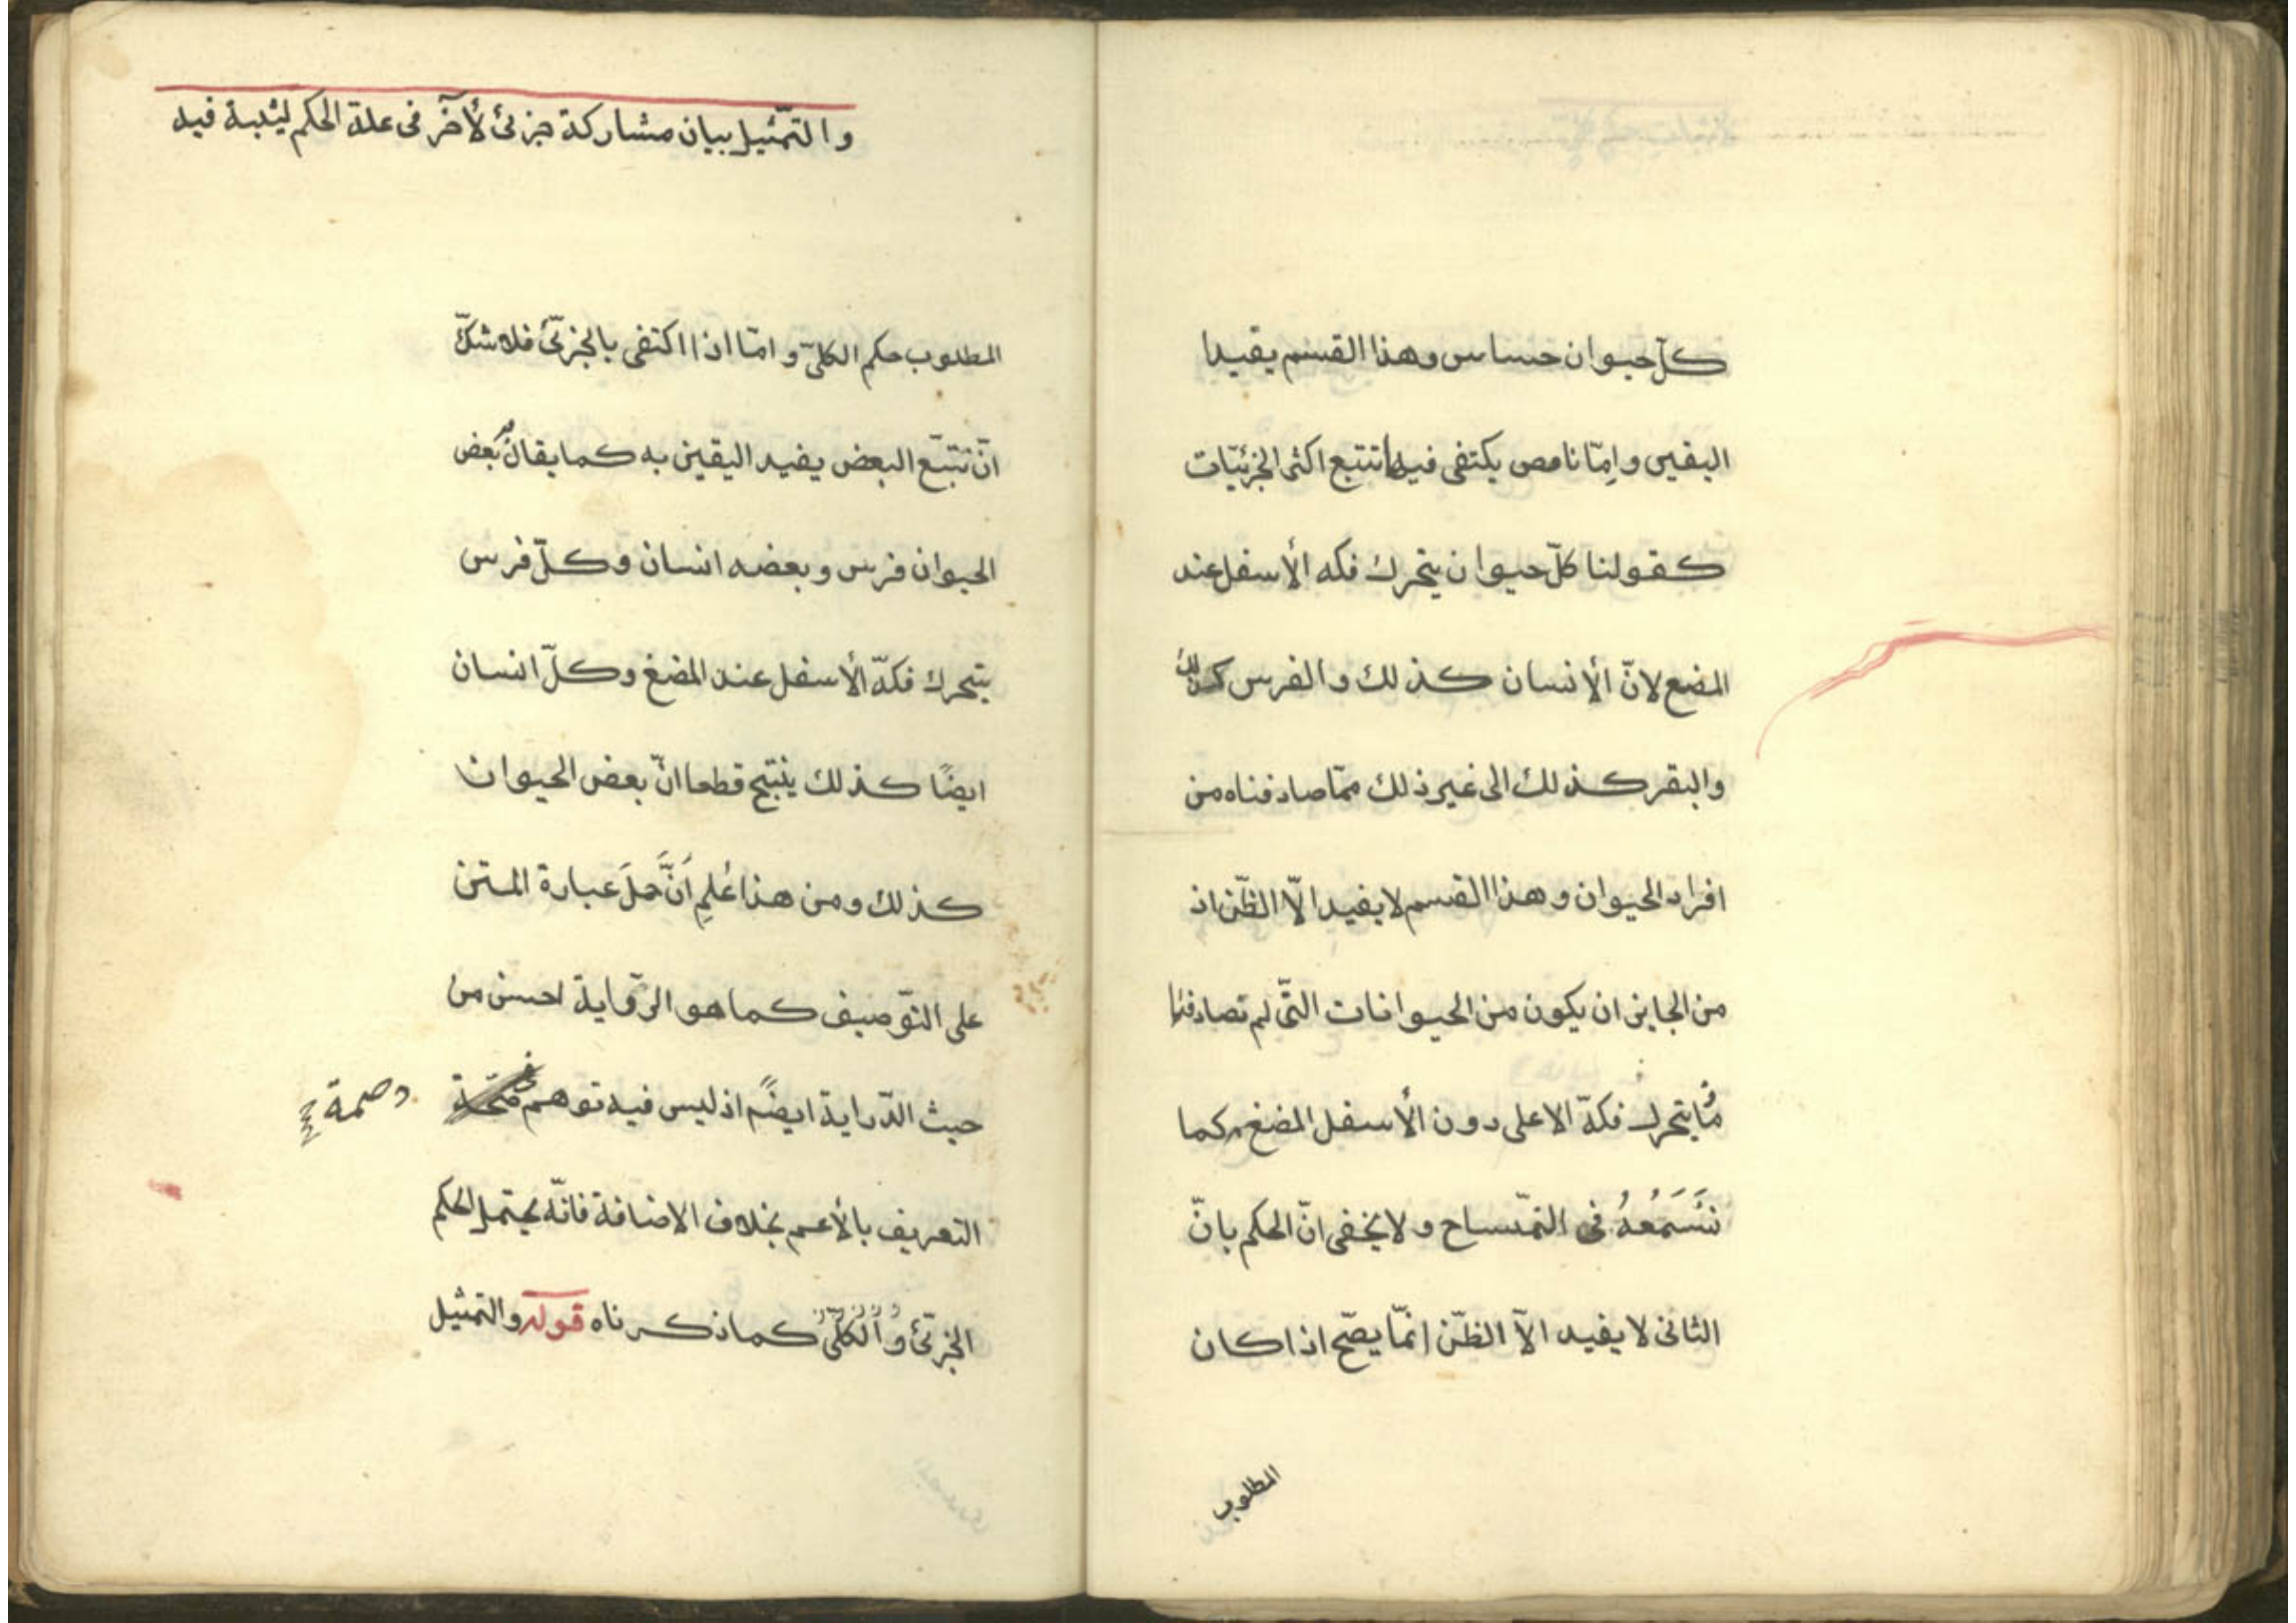 كلّ حيوان حساس وهذا القسم يفيد
اليقين وإمّا ناقص يكتفى فيه تتبع اكثر الجزئيّات
كقولنا كلّ حيوان يتحرك فكه الأسفل عند
المضغ لانّ الأنسان كذلك والفرس كذلك
والبقر كذلك الى غير ذلك ممّا صادفناه من
افراد الحيوان وهذا القسم لا يفيد الّا الظّن اذ
من الجايز ان يكون من الحيوانات التّى لم تصادفها
مُا يتحرك فكهّ الاعلى دون الأسفل المضغ كما
نَسَمَعُهُ فى التمّساح ولا يخفى انّ الحكم بانّ
الثانى لا يفيد الاّ الظّن انمّا يصّح اذا كان
المطلوب
والتمّثيل بيان مشاركة جزئ لأخر فى علة الحكم ليثبة فيه
المطلوب حكم الكلىّ وامّا اذا اكتفى بالجزئىّ فلا شكّ
انّ تتبّع البعض يفيد اليقين به كما يقال بعض
الحيوان فرس وبعضه انسان وكلّ فرس
يتحرك فكهّ الأسفل عند المضغ وكلّ انسان
ايضًا كذلك ينتج قطعا انّ بعض الحيوان
كذلك ومن هذا عُلِم اَنَّ حَملَ عبارة المتن
على التوّصيف كما هو الروّاية احسن من
حيث الدّراية ايضًا اذ ليس فيه توهم
التعريف بالأعم بخلاف الاضافة فانّه يحتمل الحكم
الجزئىّ وُالُكلّىُّ كما ذكرناه قوله والتمثيل